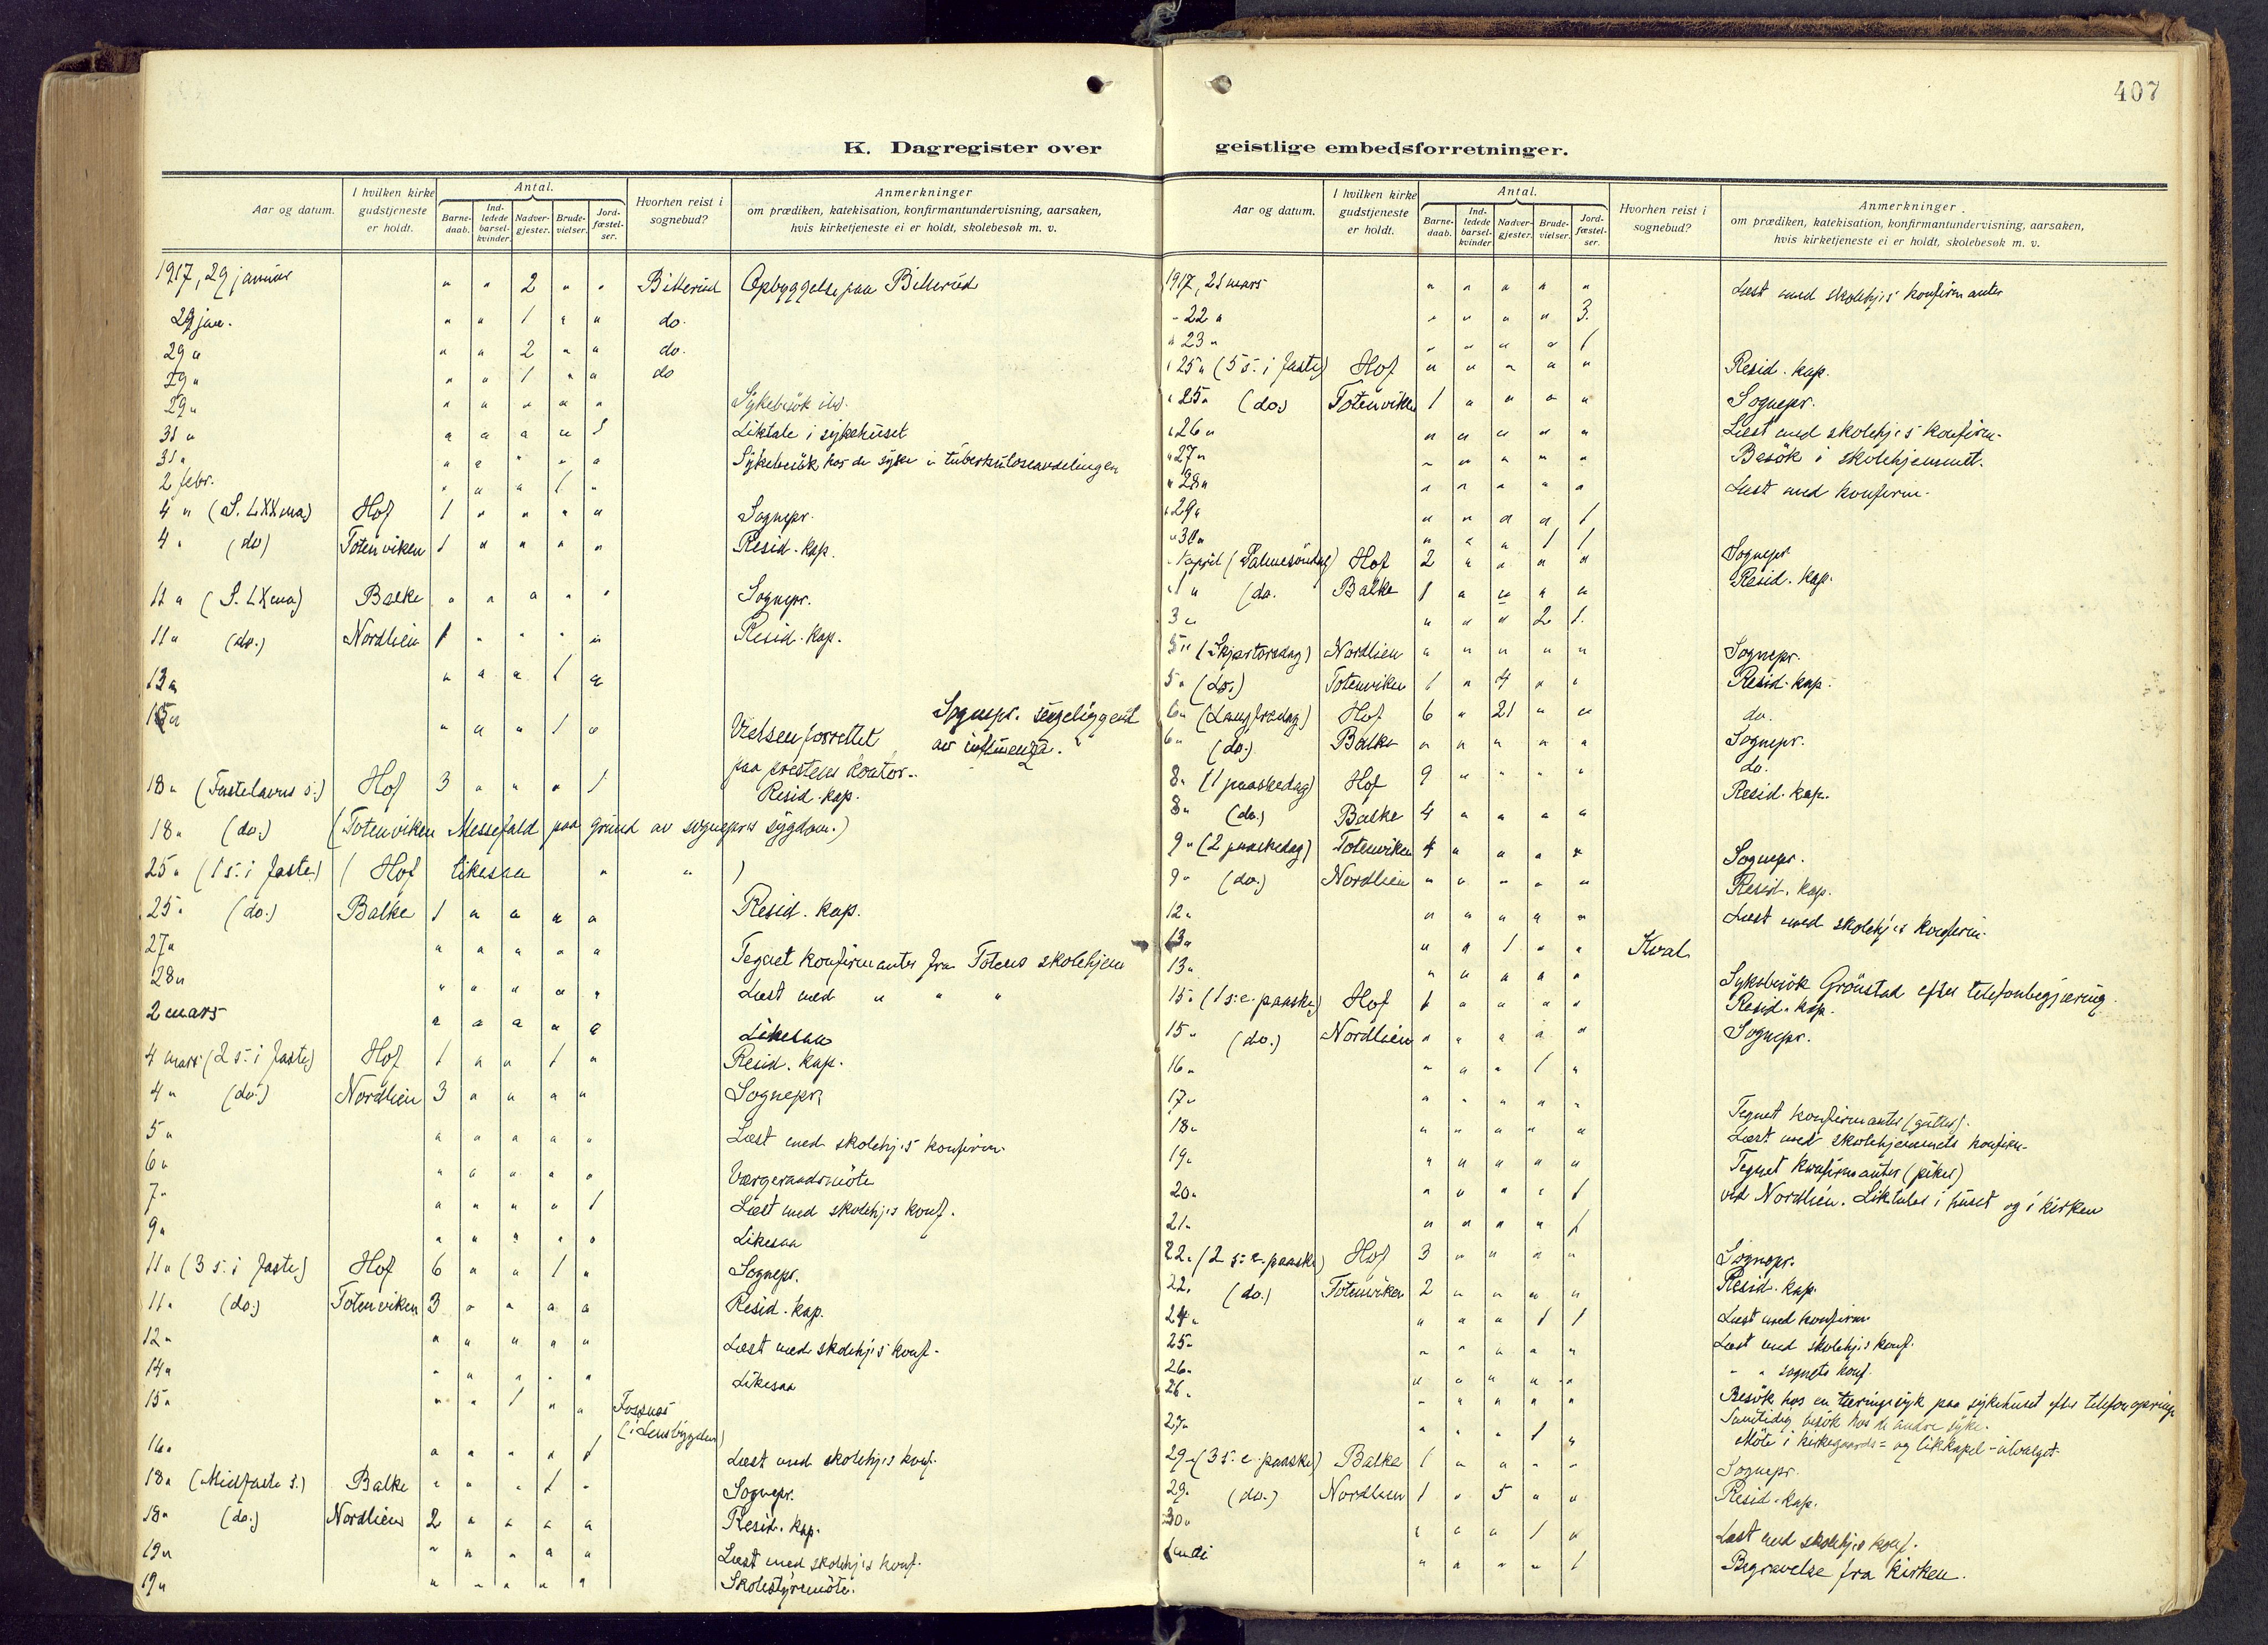 407
K. Dagregister over geistlige embedsforretninger.
Aar og datum. I hvilken kirke gudstjeneste er holdt. Antal. Barnedaab. Indledede barselkvinder. Nadvergjester. Brudevielser. Jordfæstelser. Hvorhen reist i sognebud? Anmerkninger om prædiken, katekisation, konfirmantundervisning, aarsaken, hvis kirketjeneste ei er holdt, skolebesøk m. v.
1917, 29 januar " " 2 " " Bitterud Opbyggelse paa Bitterud
29 jan. " " 1 " " do.
29 " " " 2 " " do.
29 " " " 1 " " do
29 " " " " " " Sykebesök ibd.
31 " " " " " 1 Liktale i sykehuset
31 " " " " " " Sykebesök hos de syke i tuberkuloseavdelingen
2 febr. " " " 1 "
4 " (S. LXXma) Hof 1 " " " " Sognepr.
4 " (do) Totenviken 1 " " " " Resid. kap.
11 " (S. LXma) Balke " " " " " Sognepr.
11 " (do.) Nordlien 1 " " " " Resid. kap.
13 " " " " 1 "
15 " " " " 1 " Vielsen forrettet paa prestens kontor. Sognepr. sengeliggende av influenza.
18 " (Fastelavns s.) Hof 3 " " " 1 Resid. kap.
18 " (do.) (Totenviken Messefald paa grund av sognepr's sygdom.)
25 " (1 s. i faste) ( Hof likesaa " " )
25 " (do.) Balke 1 " " " " Resid. kap.
27 " " " " " " Tegnet konfirmanter fra Totens skolehjem
28 " " " " " " Læst med " " "
2 mars " " " " " Likesaa
4 mars (2 s. i faste) Hof 1 " " 1 " Resid. kap.
4 " (do.) Nordlien 3 " " " " Sognepr.
5 " " " " " " Læst med skolehj's konfirm.
6 " " " " " " Værgeraadsmöte
7 " " " " " 1 Læst med skolehj's konf.
9 " " " " " " Likesaa
11 " (3 s. i faste) Hof 6 " " 1 " Sognepr.
11 " (do.) Totenviken 3 " " " " Resid. kap.
12 " " " " " " Læst med skolehj's konf.
14 " " " " " " Likesaa
15 " " " 1 " " Fossnes
16 " " " " " 1 Læst med skolehjs konf.
18 " (Midfaste s.) Balke " " " 1 " Sognepr.
18 " (do.) Nordlien 2 " " " " Resid. kap.
19 " " " " " " Læst med skolehj's konf.
19 " " " " " " Skolestyremöte.
Aar og datum. I hvilken kirke gudstjeneste er holdt. Antal. Barnedaab. Indledede barselkvinder Nadvergjester. Brudevielser. Jordfæstelser. Hvorhen reist i sognebud? Anmerkninger om prædiken, katekisation, konfirmantundervisning, aarsaken, hvis kirketjeneste ei er holdt, skolebesøk m. v.
1917, 21 mars " " " " " Læst med skolehj's konfirmanter
" 22 " " " " " 3
" 23 " " " " " 1
" 25 " (5 s. i faste) Hof " " " " " Resid. kap.
" 25 " (do.) Totenviken 1 " " " " Sognepr.
" 26 " " " " " " Læst med skolehj's konfirm.
" 27 " " " " " " Besök i skolehjemmet.
" 28 " " " " " " Læst med konfirm.
" 29 " " " " " 1
" 30 " " " " 1 1
1 april (Palmesöndag) Hof 2 " " " " Sognepr.
" 1 " (do. Balke 1 " " " " Resid. kap.
3 " " " " 2 1
5 " (Skjærtorsdag) Nordlien " " " " " Sognepr.
5 " (do.) Totenviken 1 " 4 " " Resid. kap.
6 " (Langfredag) Hof 6 " 21 " " do.
6 " (do.) Balke " " " " " Sognepr.
8 " (1 paaskedag) Hof 9 " " " " do.
8 " (do.) Balke 4 " " " " Resid. kap.
9 " (2 paaskedag) Totenviken 4 " " " " Sognepr.
9 " (do.) Nordlien " " " " " Resid. kap.
12 " " " " " " Læst med skolehj's konfirm.
13 " " " 1 " " Kval
13 " " " " " " Sykebesök Grönstad efter telefonbegjæring.
15 " (1 s. e. paaske) Hof 1 " " " " Resid. kap.
15 " (do.) Nordlien " " " " " Sognepr.
16 " " " " 1 "
17 " " " " " " Tegnet konfirmanter (gutter).
18 " " " " " " Læst med skolehjemmets konfirm.
19 " " " " " " Tegnet konfirmanter (piker)
20 " " " " " 1 ved Nordlien. Liktaler i huset og i kirken
21 " " " " " 1
22 " (2 s. e. paaske) Hof 3 " " " " Sognepr.
22 " (do.) Totenviken 2 " " " " Resid. kap.
24 " " " " 1 1 Læst med konfirm
25 " " " " " " Læst med skolehj's konf.
26 " " " " " " " " sognets konf.
26 " " " " " " Besök hos en tæringssyk paa sykehuset efter telefonopringn.
Samtidig besök hos de andre syke.
27 " " " " 1 " Möte i kirkegaards= og likkapel-utvalget.
29 " (3 s. e. paaske) Balke 1 " " " " Sognepr.
29 " (do.) Nordlien 1 " 5 " " Resid. kap.
30 " " " " 1 " Læst med skolehj's konf.
1 mai " " " " 1 Begravelse fra kirken.